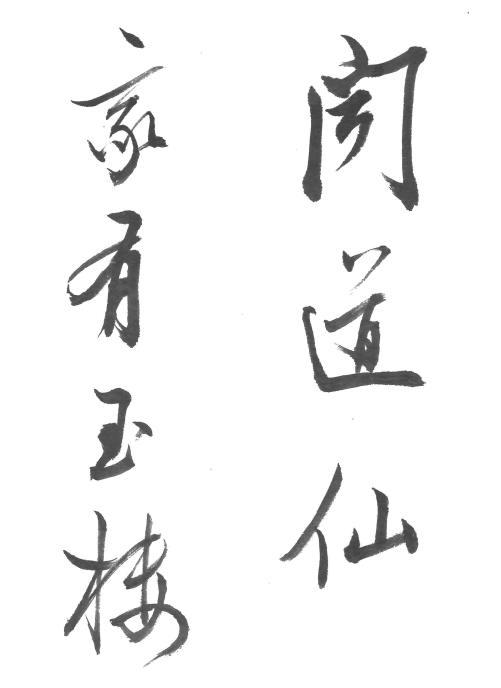 聞道仙
家有玉樓